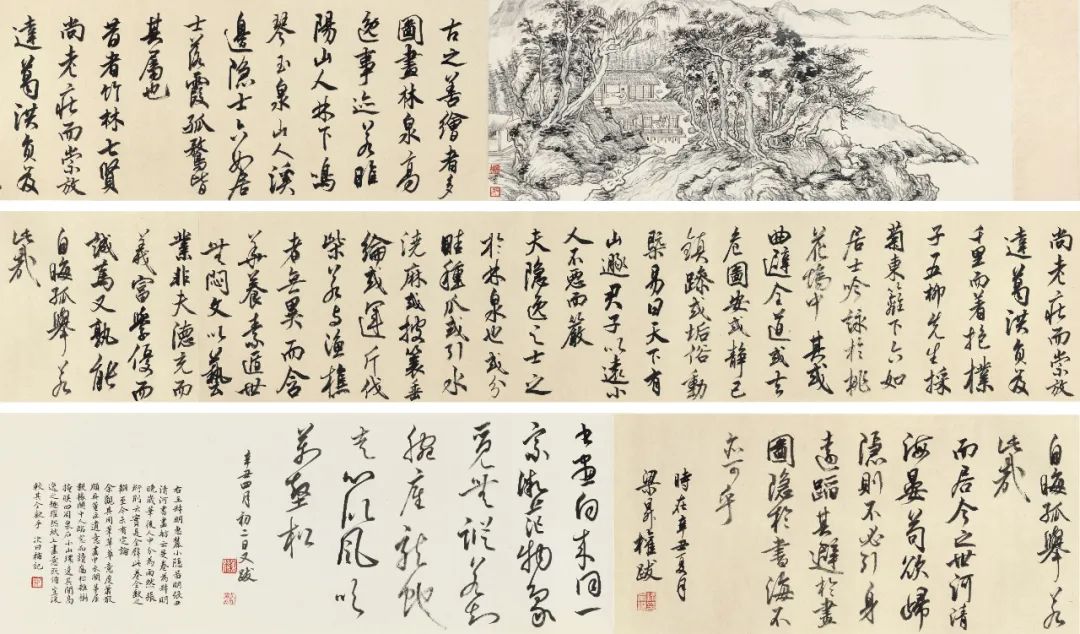 古之善繪者多
圖畫林泉高
逸事迹若睢
陽山人林下鳴
琴玉泉山人溪
邊隱士六如居
士落霞孤鶩皆
其屬也
昔者竹林七賢
尚老莊而崇放
達葛洪負笈
尚老莊而崇放
達葛洪負笈
千里而著抱樸
子五柳先生採
菊東籬下六如
居士吟詠於桃
花塢中 其或
曲避全道或去
危圖安或靜己
鎮躁或垢俗動
槩易曰天下有
山遯君子以遠小
人不惡而嚴
夫隱逸之士之
於林泉也或分
畦種瓜或引水
澆麻或披蓑垂
綸或運斤伐
柴若與漁樵
者無異而含
華養素遁世
無悶文以藝
業非夫德充而
義富學優而
誠篤又孰能
自晦孤舉若
此哉
自晦孤舉若
此哉
而居今之世河清
海晏苟欲歸
隱則不必引身
遠蹈其避於畫
圖隱於書海不
亦可乎
時在辛丑夏月
權跋
書畫向來同一
宗微茫物象
覓無蹤若知
腕底龍蛇
走似風吹
萬壑松
辛丑四月初二日又跋
次日補記